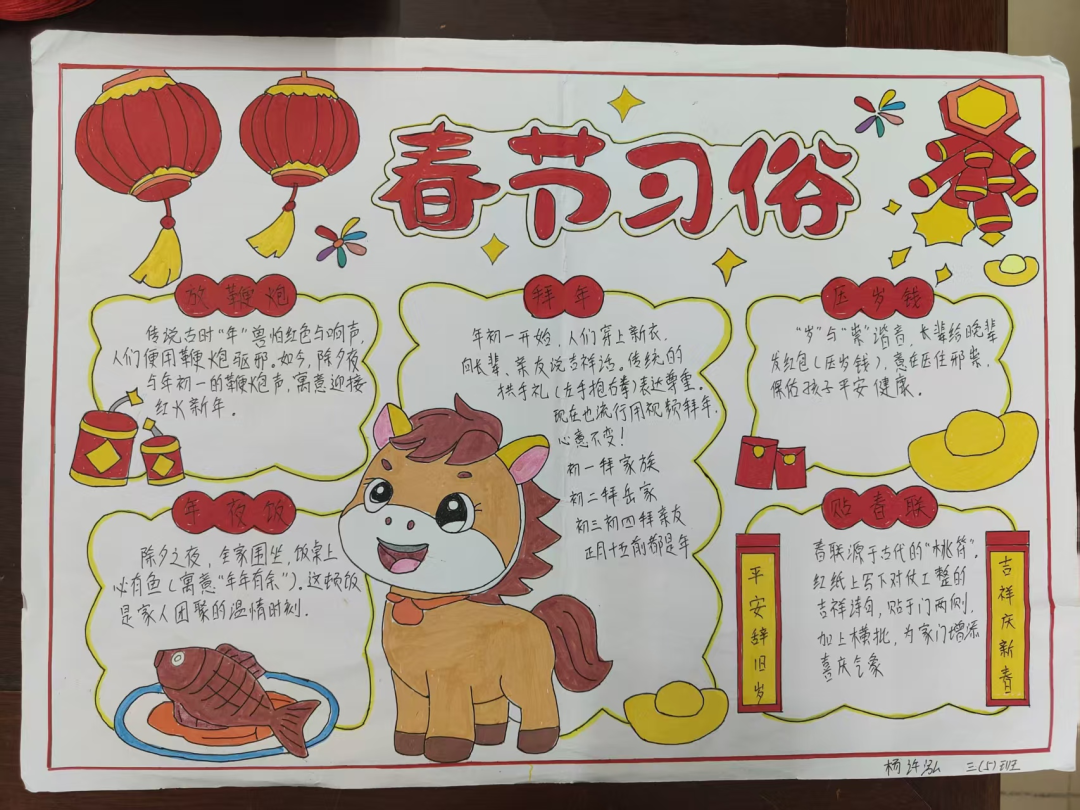 春节习俗
放鞭炮
传说古时“年”兽怕红色与响声,
人们便用鞭炮驱邪。如今,除夕夜
与年初一的鞭炮声,寓意迎接
红火新年。
年夜饭
除夕之夜,全家围坐,饭桌上
必有鱼(寓意“年年有余”)。这顿饭
是家人团聚的温情时刻.
拜年
年初一开始,人们穿上新衣,
向长辈、亲友说吉祥话。传统的
拱手礼,(左手抱右拳)表达尊重。
现在也流行用视频拜年,
心意不变!
初一拜家族
初二拜岳家
初三初四拜亲友
正月十五前都是年
压岁钱
“岁”与“祟”谐音,长辈给晚辈
发红包(压岁钱),意在压住邪祟,
保佑孩子平安健康.
贴春联
春联源于古代的“桃符”.
红纸上写下对仗工整的
吉祥诗句,贴于门两侧,
加上横批,为家门增添
喜庆气象
平安辞旧岁
吉祥庆新春
杨许弘 三(5)班